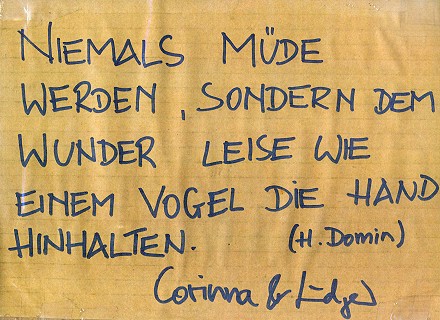 NIEMALS MÜDE
WERDEN, SONDERN DEM
WUNDER LEISE WIE
EINEM VOGEL DIE HAND
HINHALTEN. (H. Domin)
Corinna &